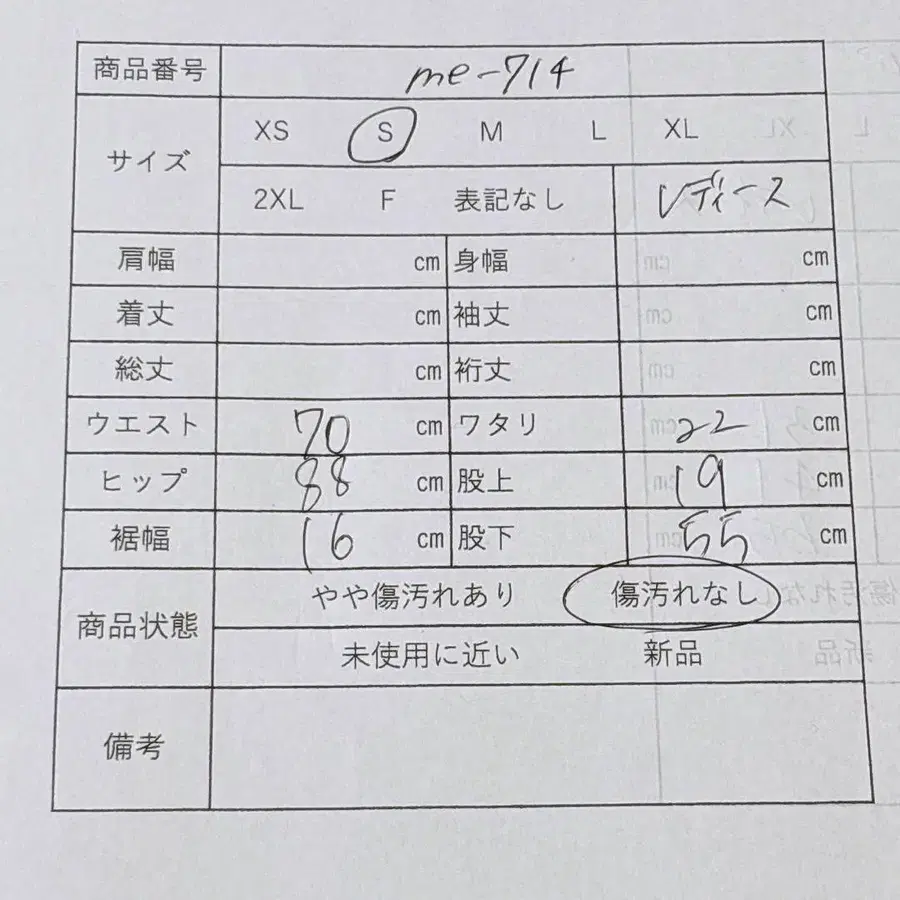 商品番号 me-714
サイズ XS S M L XL
2XL F 表記なし レディース
肩幅 cm 身幅 cm
着丈 cm 袖丈 cm
総丈 cm 裄丈 cm
ウエスト 70 cm ワタリ 22 cm
ヒップ 88 cm 股上 19 cm
裾幅 16 cm 股下 55 cm
商品状態 やや傷汚れあり 傷汚れなし
未使用に近い 新品
備考